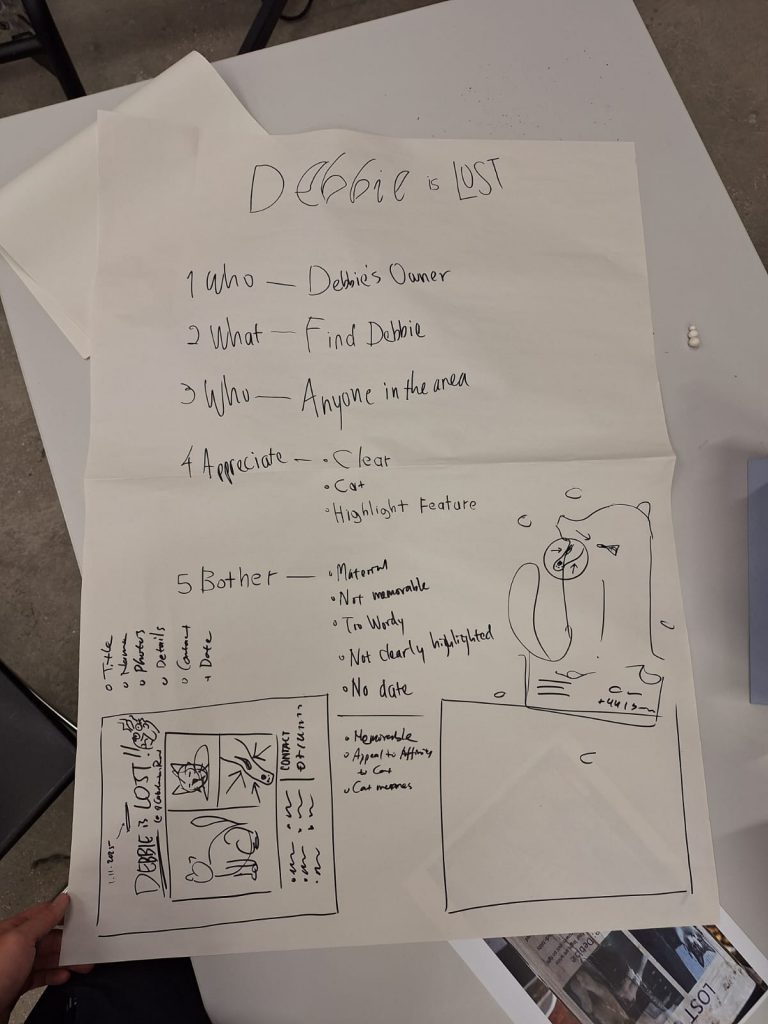 Debbie is LOST
1 Who — Debbie's Owner
2 What — Find Debbie
3 Who — Anyone in the area
4 Appreciate — • Clear
• Cat
• Highlight Feature
5 Bother — • Material
• Not memorable
• Too Wordy
• Not clearly highlighted
• No date
• Memorable
• Appeal to Affinity
to Cat
• Cat memes
o Title
o Name
o Photos
o Details
o Contact
+ Date
1.11.2025
DEBBIE is LOST!!
CONTACT
LOST
Debbie